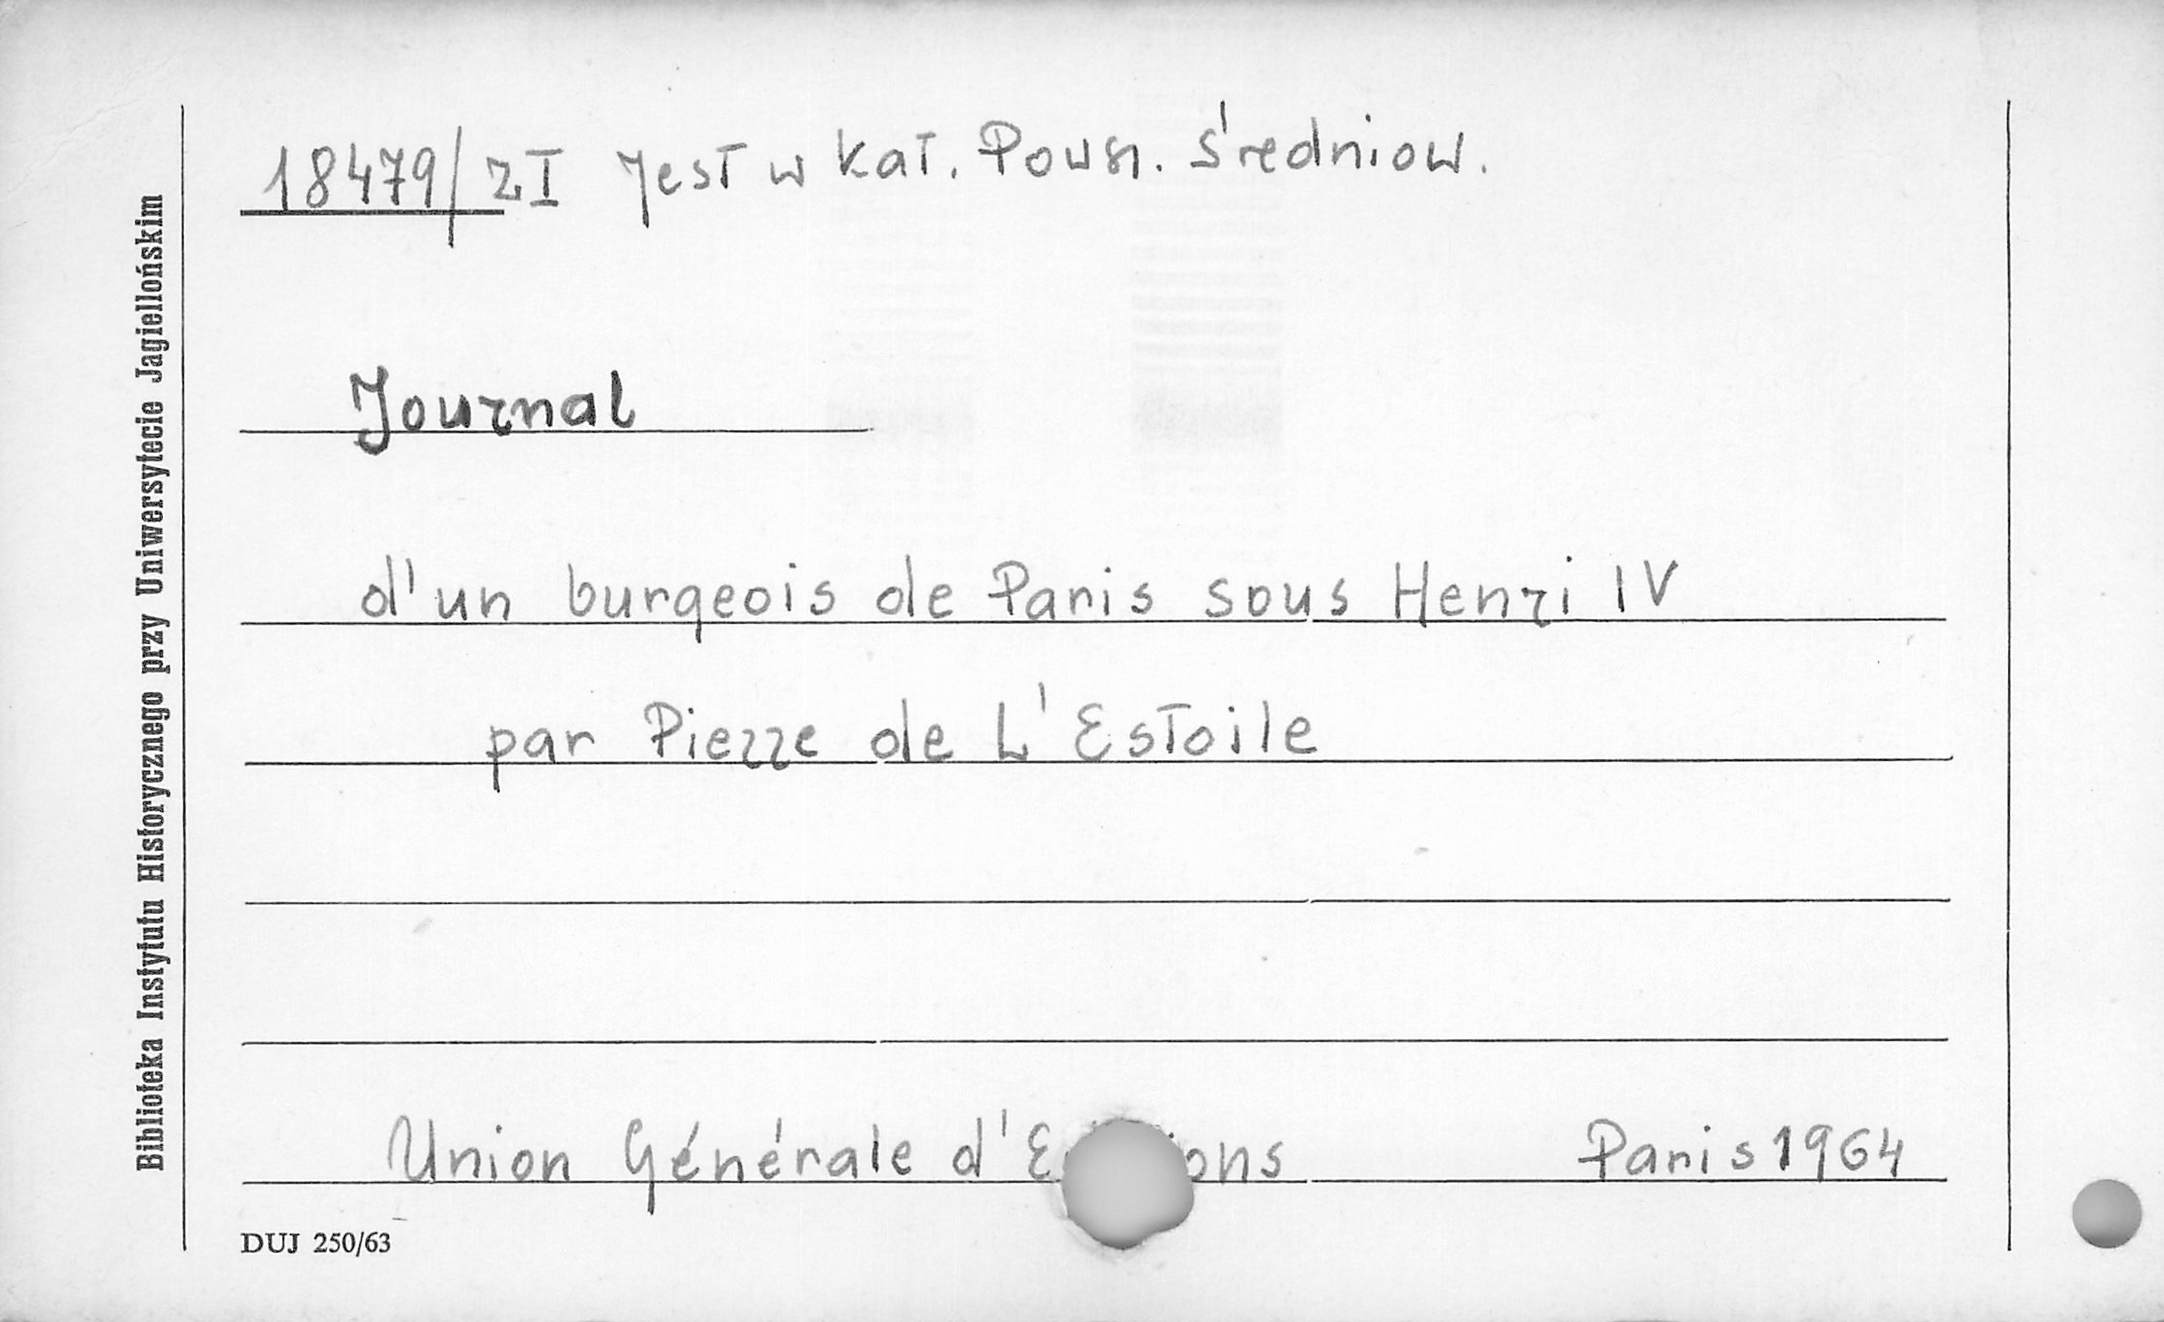 18479/ZI Jest w Kat. Powsz. Średniow.
Journal
d'un burgeois de Paris sous Henri IV
par Pierre de L'Estoile
Union Générale d'E ons Paris 1964
DUJ 250/63
Biblioteka Instytutu Historycznego przy Uniwersytecie Jagiellońskim